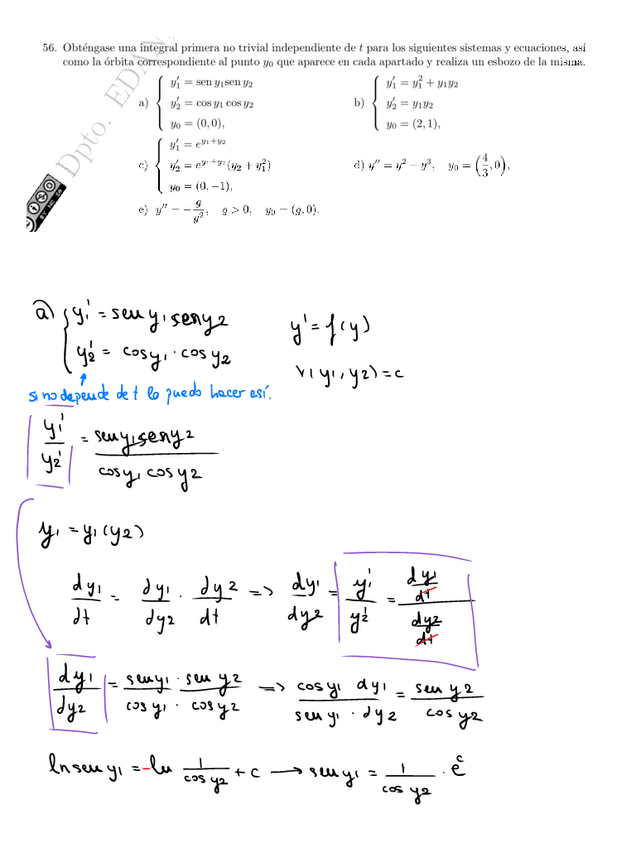 Dpto. EDAN
56. Obténgase una integral primera no trivial independiente de t para los siguientes sistemas y ecuaciones, así
como la órbita correspondiente al punto y₀ que aparece en cada apartado y realiza un esbozo de la misma.
a) { y₁′ = sen y₁sen y₂
y₂′ = cos y₁ cos y₂
y₀ = (0, 0),
b) { y₁′ = y₁² + y₁y₂
y₂′ = y₁y₂
y₀ = (2, 1),
c) { y₁′ = e^{y₁+y₂}
y₂′ = e^{y₁+y₂}(y₂ + y₁²)
y₀ = (0, −1),
d) y″ = y² − y³, y₀ = (4/3, 0),
e) y″ = −g/y², g > 0, y₀ = (g, 0).
a) { y₁' = sen y₁ sen y₂
y₂' = cos y₁ · cos y₂
y' = f(y)
V(y₁, y₂) = c
si no depende de t lo puedo hacer así.
y₁'/y₂' = sen y₁ sen y₂ / cos y₁ cos y₂
y₁ = y₁(y₂)
dy₁/dt = dy₁/dy₂ · dy₂/dt => dy₁/dy₂ = y₁'/y₂' = (dy₁/dt)/(dy₂/dt)
dy₁/dy₂ = sen y₁ · sen y₂ / cos y₁ · cos y₂ => cos y₁ dy₁ / sen y₁ · dy₂ = sen y₂ / cos y₂
ln sen y₁ = -ln 1/cos y₂ + c → sen y₁ = 1/cos y₂ · e^c